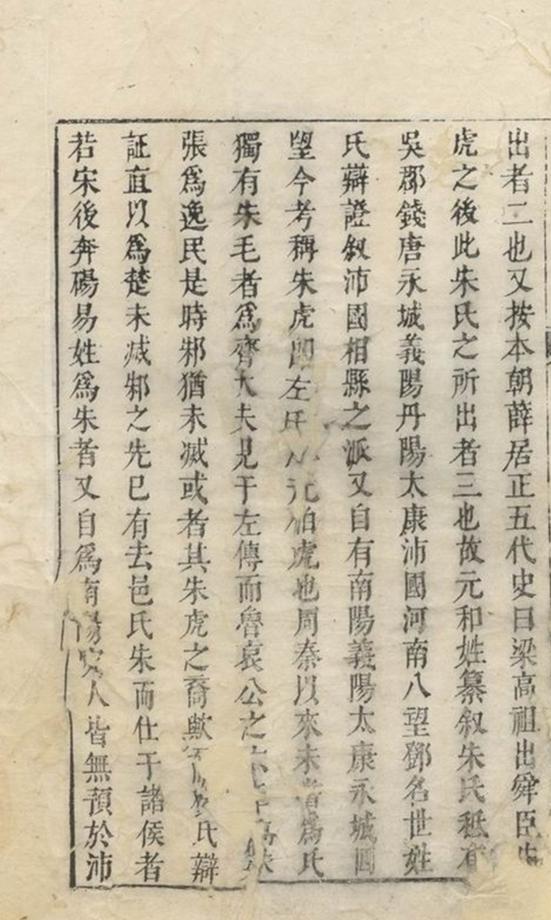 出者二也又按本朝薛居正五代史曰梁高祖出舜臣朱
虎之後此朱氏之所出者三也故元和姓纂叙朱氏秪有
吳郡錢唐永城義陽丹陽太康沛國河南八望鄧名世姓
氏辯證叙沛國相縣之派又自有南陽義陽太康永城四
望今考稱朱虎即左氏 元伯虎也周秦以來未 爲氏
獨有朱毛者爲齊大夫見于左傳而魯哀公之
張爲逸民是時邾猶未滅或者其朱虎之裔歟 氏辯
証直以爲楚未滅邾之先已有去邑氏朱而仕于諸侯者
若宋後奔碭易姓爲朱者又自爲南陽 人皆無預於沛